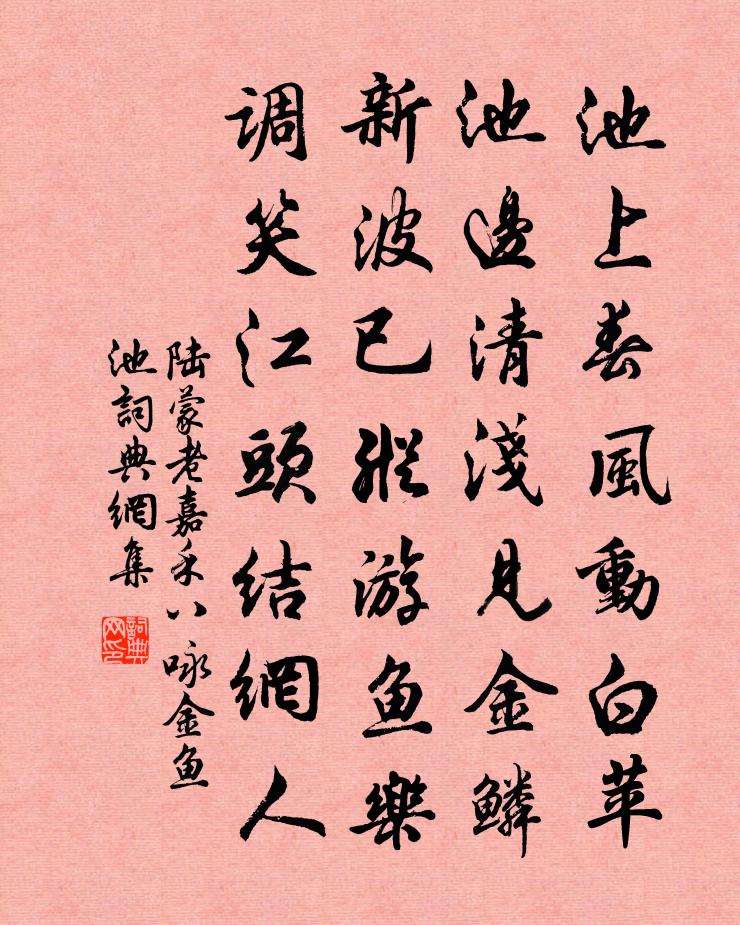 池上春風動白苹
池邊清淺見金鱗
新波已縱游鱼樂
调笑江頭结網人
陆蒙老嘉禾八咏金鱼
池詞典網集
詞典网印